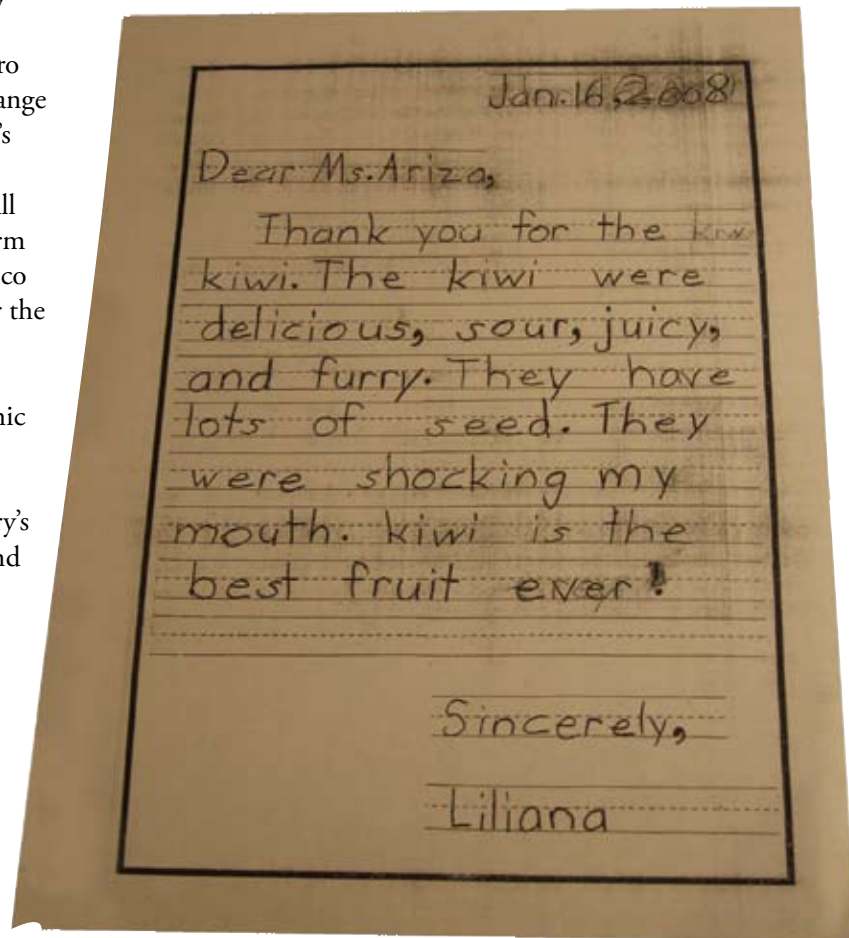 ro
ange
's
ll
rm
co
r the
nic
ry's
nd
Jan. 16, 2008
Dear Ms. Ariza,
Thank you for the kiw
kiwi. The kiwi were
delicious, sour, juicy,
and furry. They have
lots of seed. They
were shocking my
mouth. kiwi is the
best fruit ever!
Sincerely,
Liliana